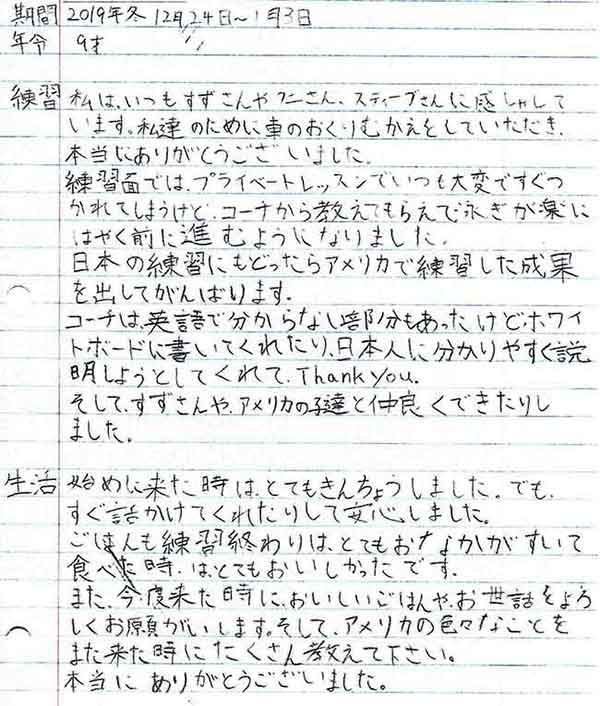 期間 2019年冬 12月24日~1月3日
年令 9才
練習 私は、いつもすずさんやクニさん、スティーブさんに感しゃして
います。私達のために車のおくりむかえをしていただき、
本当にありがとうございました。
練習面では、プライベートレッスンでいつも大変ですぐつ
かれてしまうけど、コーチから教えてもらえて泳ぎが楽に
はやく前に進むようになりました。
日本の練習にもどったらアメリカで練習した成果
を出してがんばります。
コーチは、英語で分からない部分もあったけどホワイ
トボードに書いてくれたり、日本人に分かりやすく説
明しようとしてくれて、Thank you.
そして、すずさんや、アメリカの子達と仲良くできたりし
ました。
生活 始めに来た時は、とてもきんちょうしました。でも、
すぐ話かけてくれたりして安心しました。
ごはんも練習終わりは、とてもおなかがすいて
食べた時、は、とてもおいしかったです。
また、今度来た時に、おいしいごはんや、お世話をよろ
しくお願がいします。そして、アメリカの色々なことを
また来た時にたくさん教えて下さい。
本当にありがとうございました。